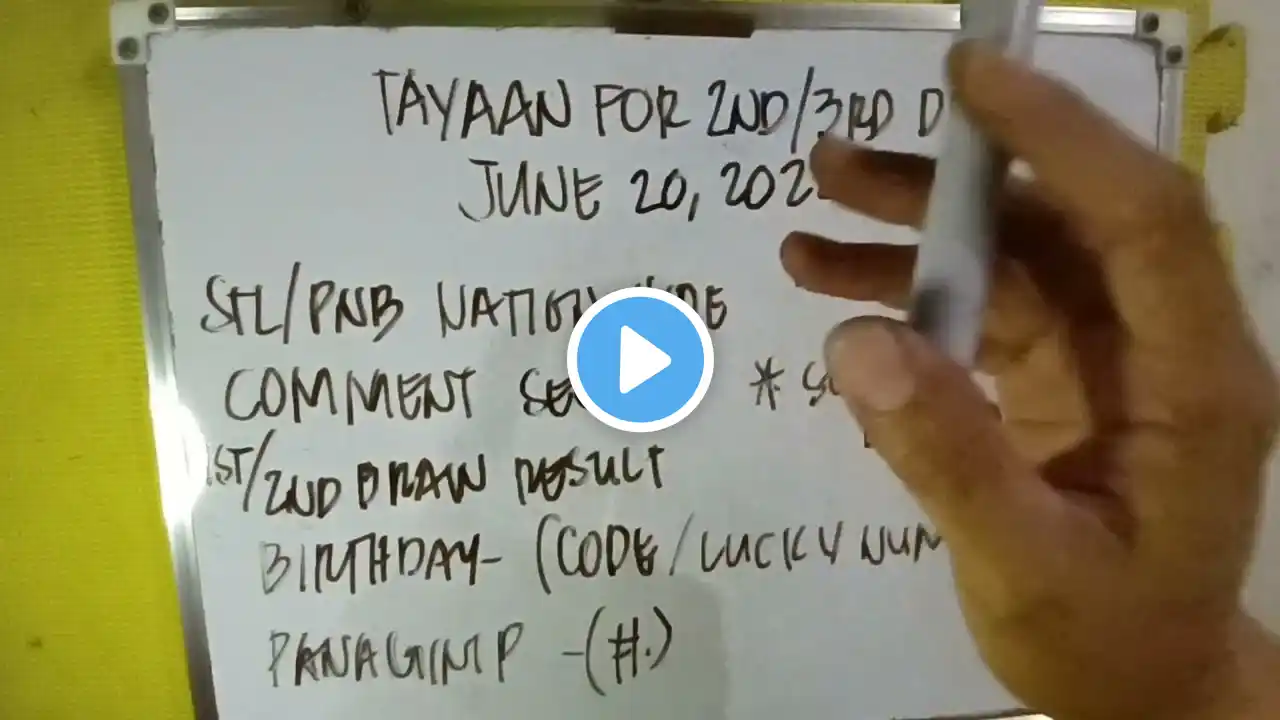 TAYAAN FOR 2ND/3RD D
JUNE 20, 202
STL/PNB NATIONWIDE
COMMENT SE *
1ST/2ND DRAW RESULT
BIRTHDAY- (CODE/LUCKY NUM
PANAGINIP -(#.)